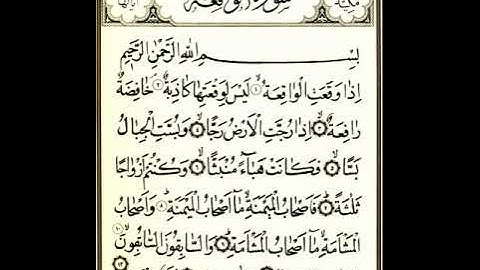 مكية
سورة الواقعة
آياتها
بِسْمِ اللهِ الرَّحْمٰنِ الرَّحِيمِ
اِذَا وَقَعَتِ الْوَاقِعَةُ ۙ ﴿١﴾ لَيْسَ لِوَقْعَتِهَا كَاذِبَةٌ ۘ ﴿٢﴾ خَافِضَةٌ
رَافِعَةٌ ۙ ﴿٣﴾ اِذَا رُجَّتِ الْاَرْضُ رَجًّا ۙ ﴿٤﴾ وَبُسَّتِ الْجِبَالُ
بَسًّا ۙ ﴿٥﴾ فَكَانَتْ هَبَٓاءً مُنْبَثًّا ۙ ﴿٦﴾ وَكُنْتُمْ اَزْوَاجًا
ثَلٰثَةً ۜ ﴿٧﴾ فَاَصْحَابُ الْمَيْمَنَةِ ۙ مَٓا اَصْحَابُ الْمَيْمَنَةِ ۜ ﴿٨﴾ وَاَصْحَابُ
الْمَشْـَٔمَةِ ۙ مَٓا اَصْحَابُ الْمَشْـَٔمَةِ ۜ ﴿٩﴾ وَالسَّابِقُونَ السَّابِقُونَ ﴿١٠﴾